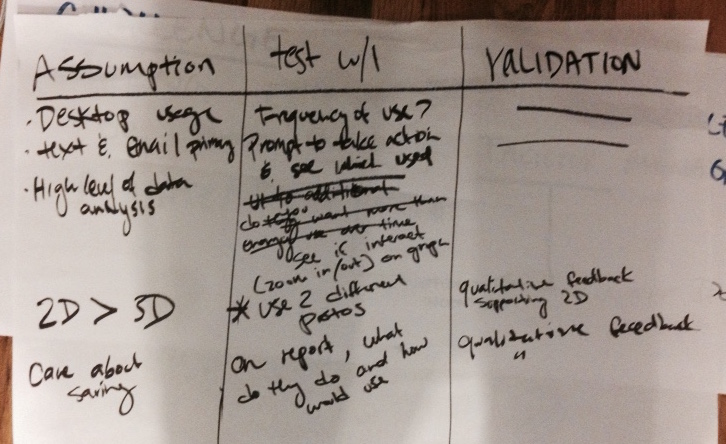 Assumption
test w/
VALIDATION
· Desktop usage
Frequency of use?
· text & email primary
Prompt to take action
& see which used
· High level of data
analysis
do they want more than
energy use over time
see if interact
(zoom in/out) on graph
2D > 3D
* use 2 different
qualitative feedback
supporting 2D
Care about
saving
on report, what
do they do and how
would use
qualitative feedback
"